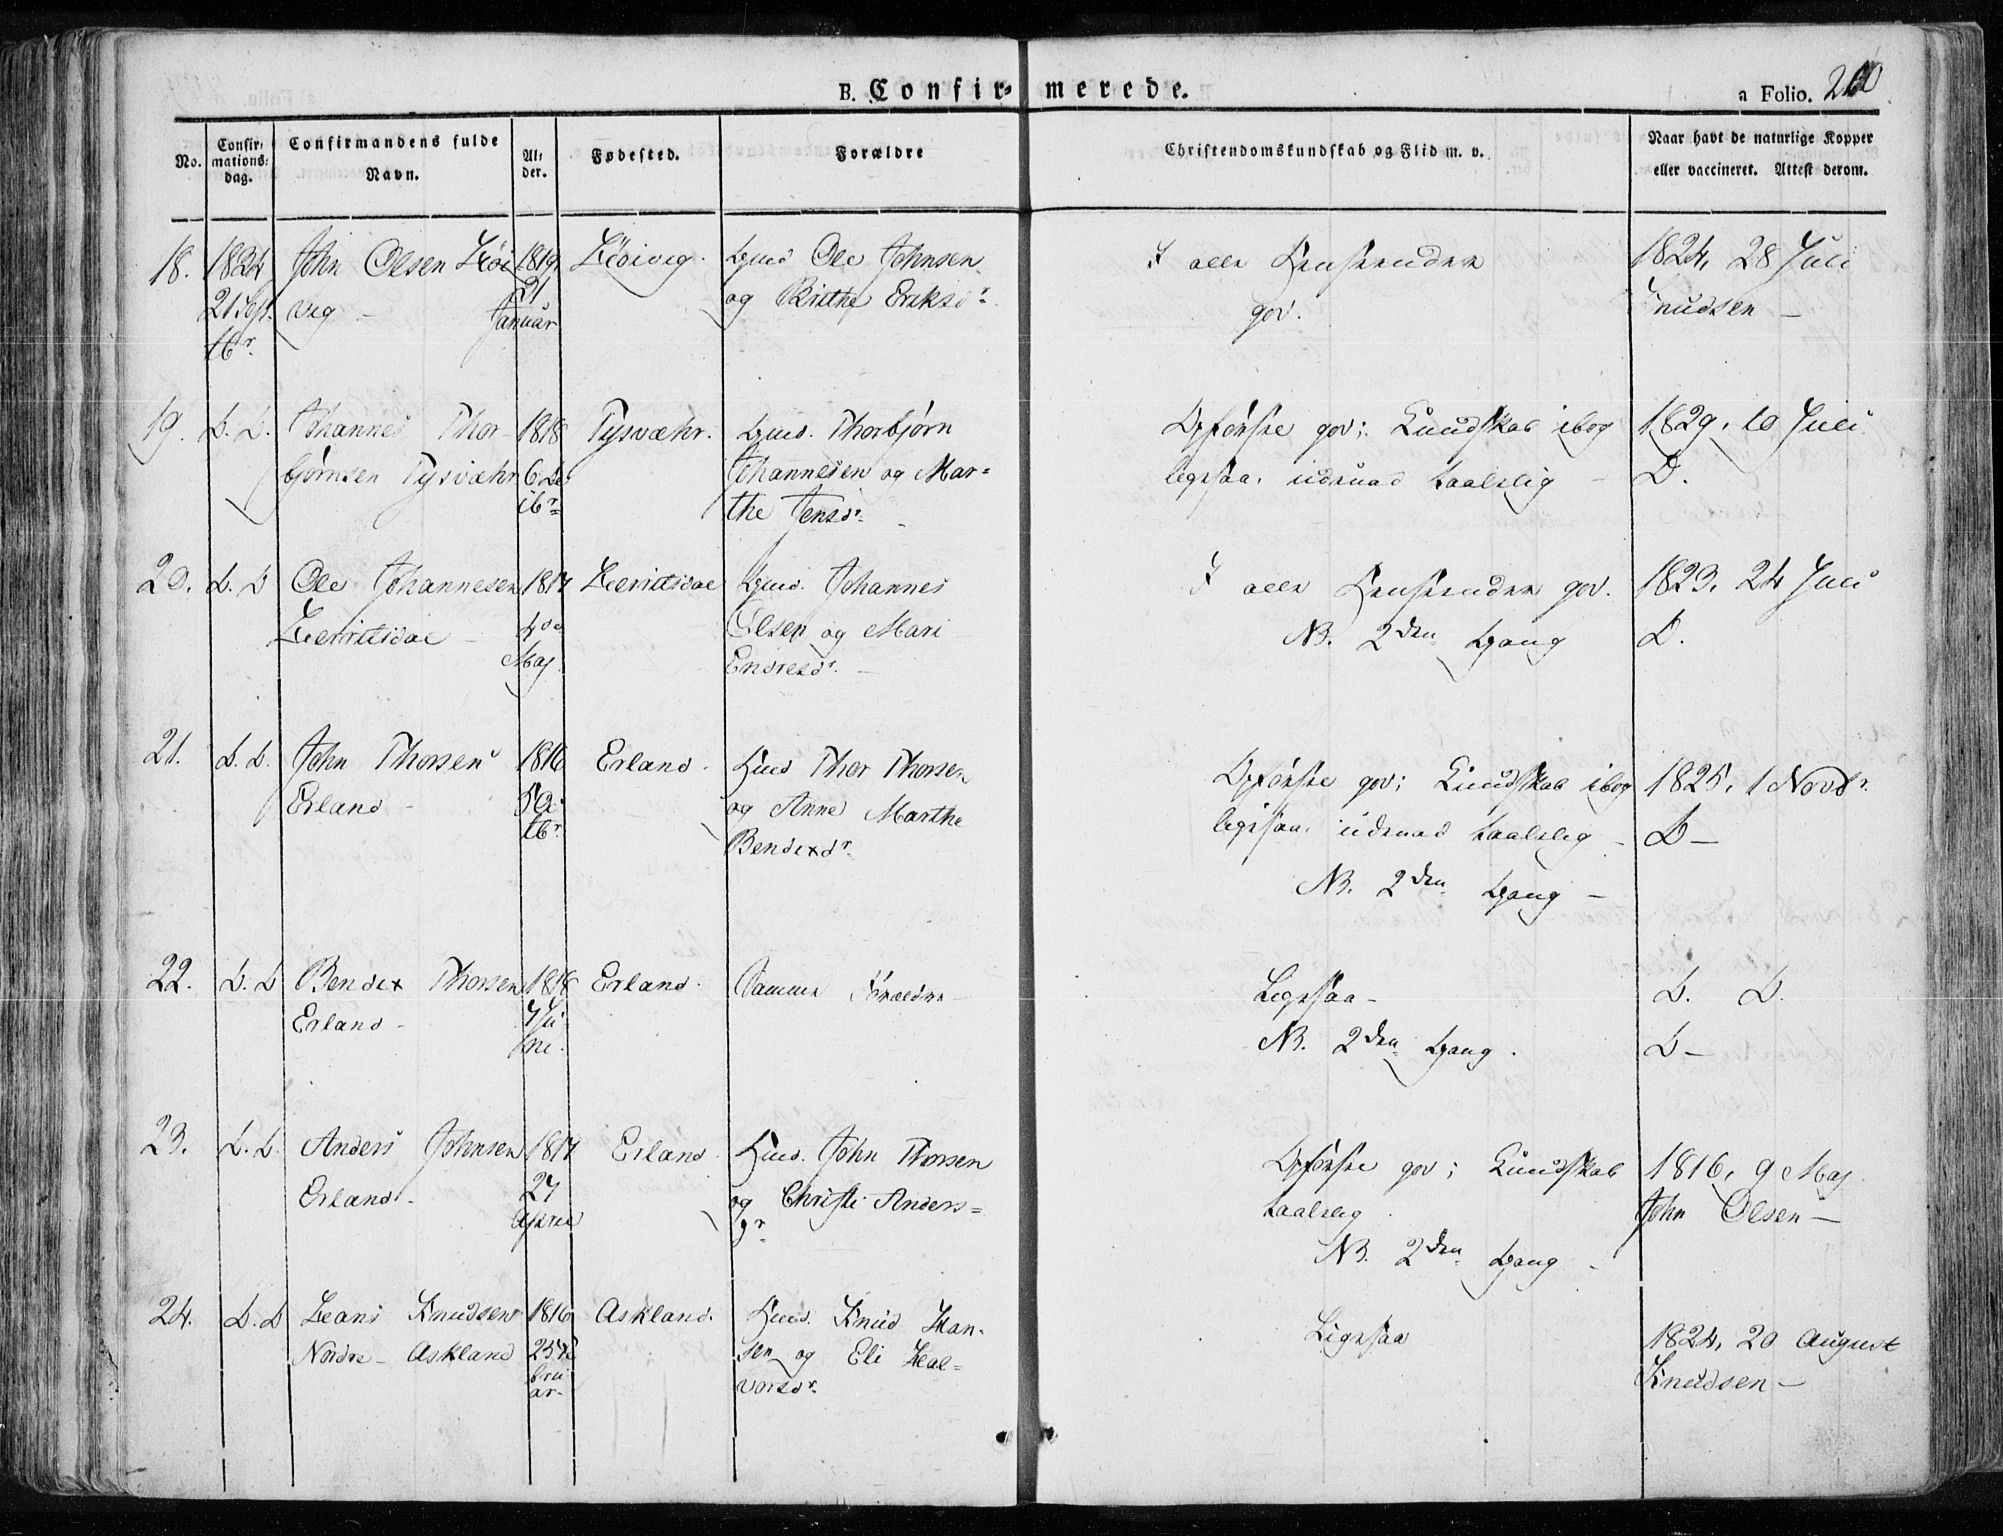 B. Confirmerede.
a Folio. 260
No.
Confir-
mations-
dag.
Confirmandens fulde
Navn.
Al-
der.
Fødested.
Forældre
Christendomskundskab og Flid m. v.
Naar havt de naturlige Kopper
eller vaccineret. Attest derom.
18.
21 Sept
tbr.
John Olsen
vig -
1819
21
Januar
Gmd Ole Johnsen
og Birthe Eriksdr.
I alle Henseender
god.
1824, 28 Juli
Knudsen -
19. D. D.
Johannes Thor-
bjørnsen Tysvæhr
1818
6 De
cbr.
Tysvæhr.
Gmd. Thorbjørn
Johannesen og Mar=
the Jensdr.
Opførsel god; Kundskab ibog
ligesaa, udenad taalelig -
1829, 10 Juli
D.
20. D. D
Ole Johannesen
1817
4de
Maj.
Gmd. Johannes
Olsen og Mari
Endresdr. -
I alle Henseender god.
NB. 2den Gang
1823, 24 Juli
D.
21. D. D.
John Thorsen
Erland -
1816
5 Oc
tbr.
Erland -
Hmd Thor Thorsen
og Anne Marthe
Bendixdr.
Opførsel god; Kundskab ibog
ligesaa, udenad taalelig -
NB. 2den Gang -
1825, 1 Novbr.
D -
22. D. D
Bendix Thorsen
Erland -
1818
7 Ju
ni.
Erland.
Samme Forældre -
Ligesaa -
NB. 2den Gang.
D. D.
D -
23. D. D.
Anders Johnsen
Erland -
1817
27
April
Erland.
Hmd. John Thorsen
og Christi Anders=
dr.
Opførsel god; Kundskab
taalelig.
NB. 2den Gang -
1816, 9 Maj
John Olsen -
24. D. D
Hans Knudsen
Nordre - Askland
1816
25 Fe
bru
ar -
Askland.
Hmd. Knud Han-
sen og Eli Hal=
vorsdr.
Ligesaa
1824, 20 August
Knudsen -